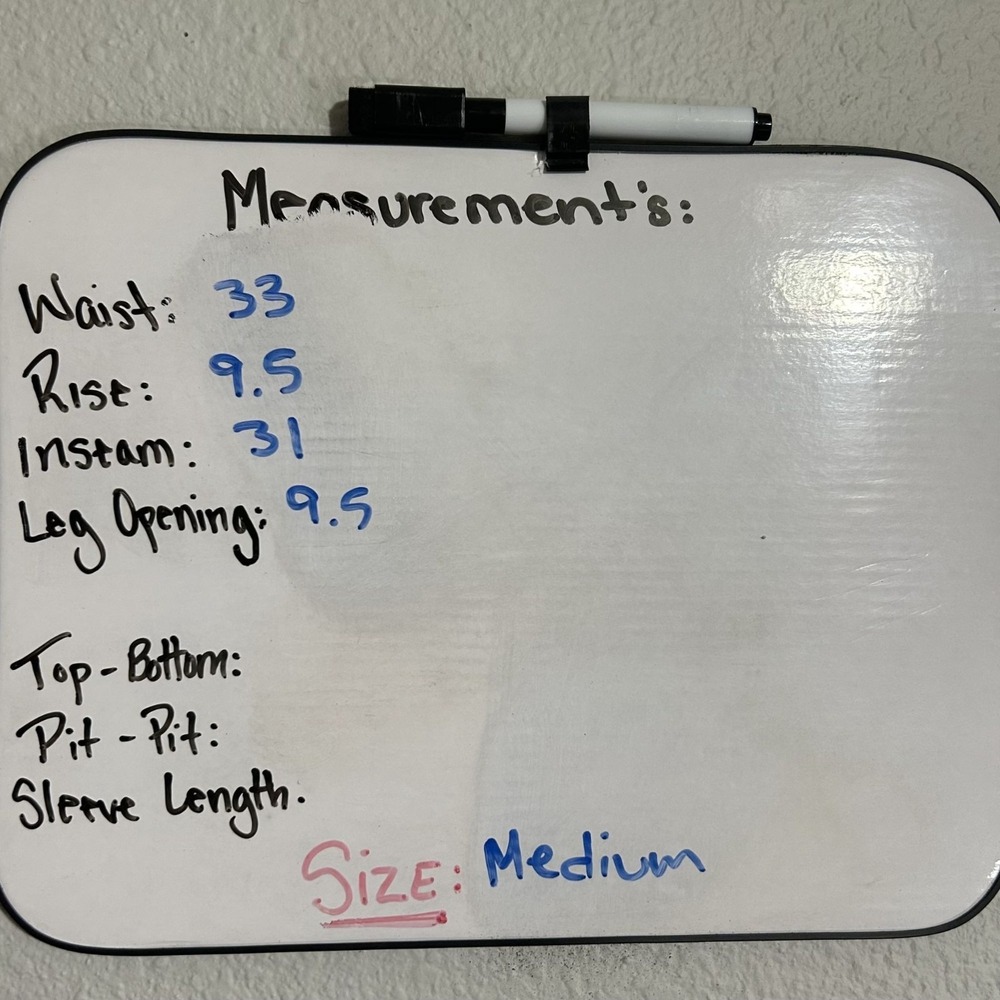 Measurement's:
Waist: 33
Rise: 9.5
Instam: 31
Leg Opening: 9.5
Top-Bottom:
Pit-Pit:
Sleeve Length.
Size: Medium